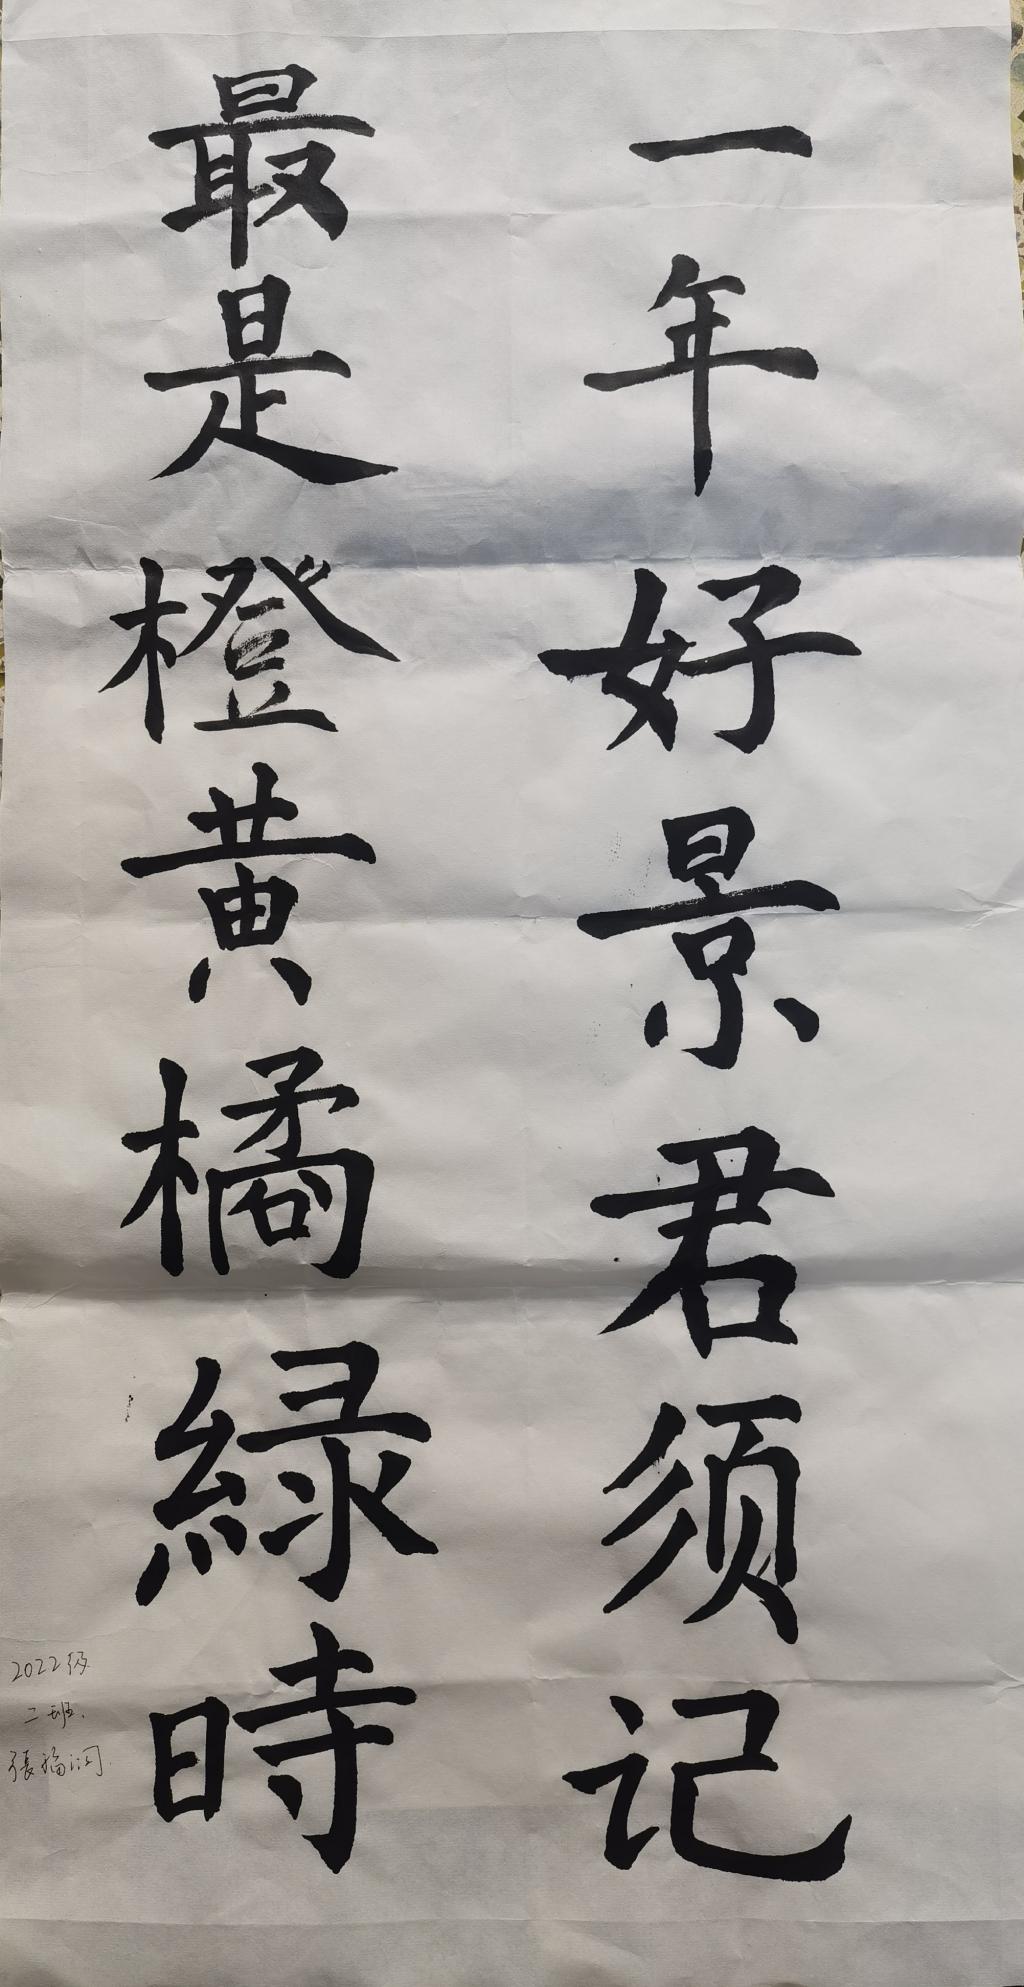 一年好景君须记
最是橙黄橘緑時
2022级
二班.
張福润.